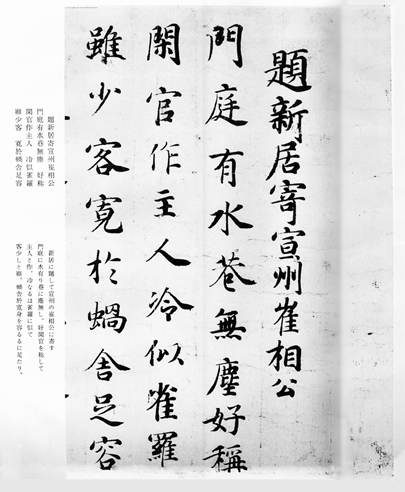 題新居寄宣州崔相公
門庭有水巷無塵好稱
閑官作主人冷似雀羅
雖少客寛於蝸舎足容
題新居寄宣州崔相公
門庭有水巷無塵 好称
閑官作主人 冷似雀羅
雖少客 寛於蝸舎足容
新居に題して宣州の崔相公に寄す
門庭に水有り巷に塵無し、好閑官を称して
主人と作。冷なるは雀羅に似て
客少しと雖、蝸舎於寛身を容るるに足たり。